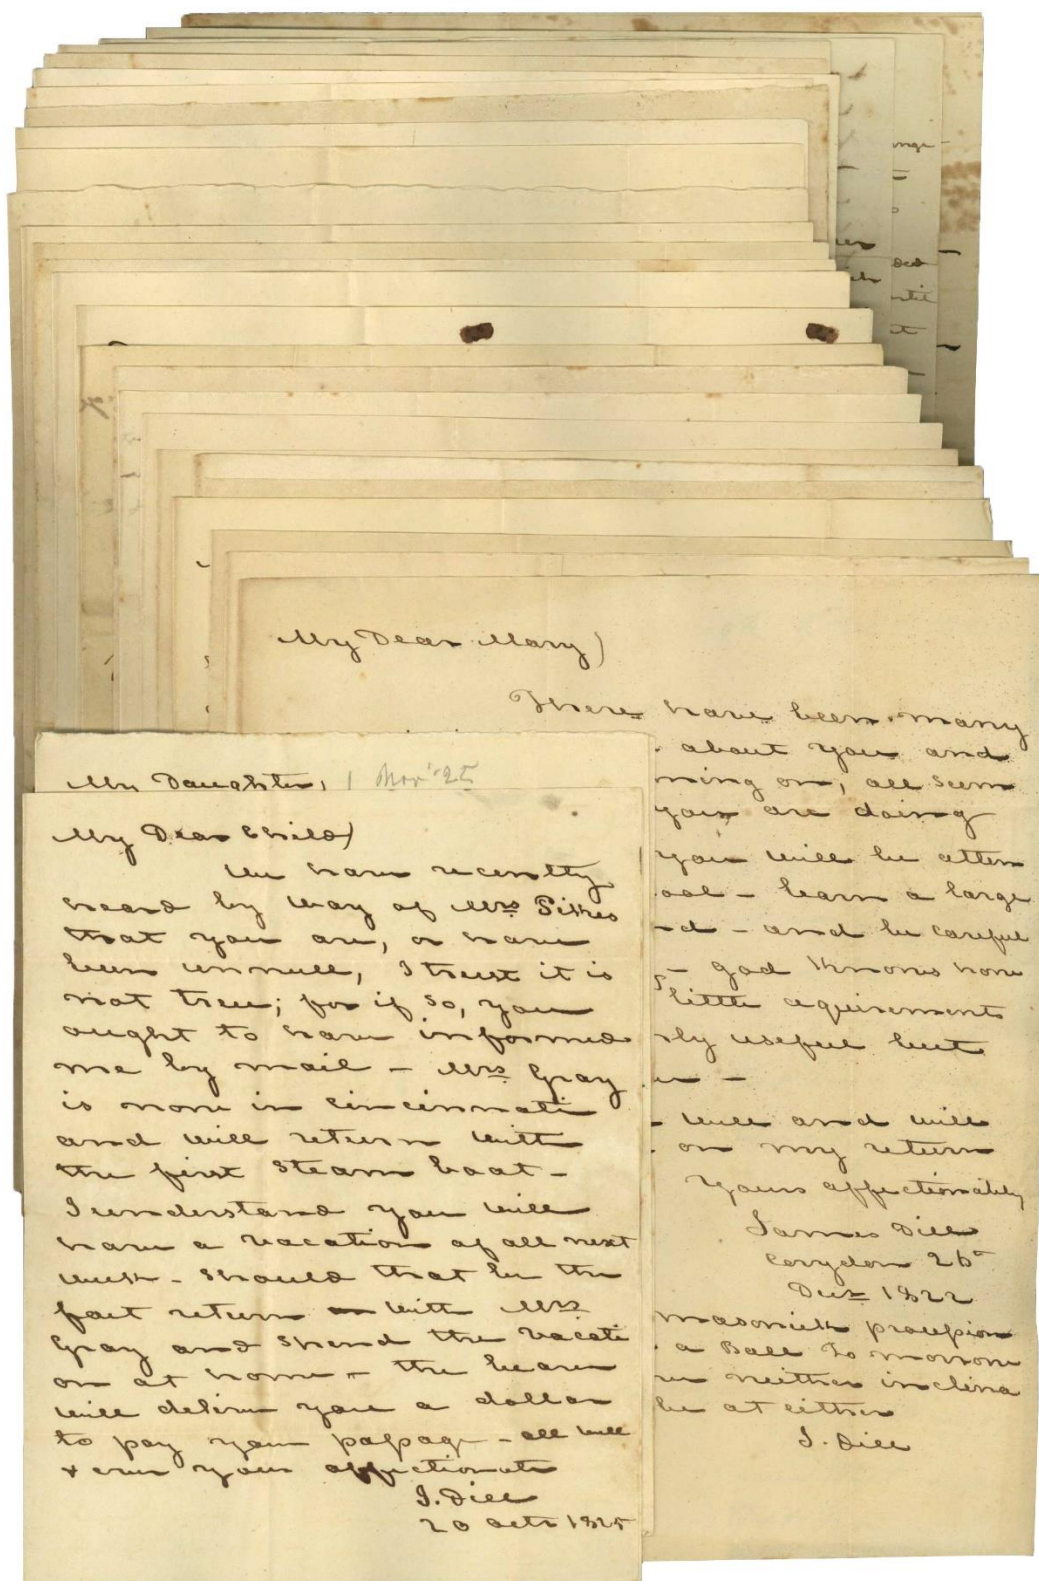 My Dear Mary)
There have been many
about you and
ming on, all seem
you are doing
you will be atten
ool - learn a large
nd - and be careful
- god knows how
little aquirements
rly useful but
- well and will
on my return
Yours affectionately
James Dill
Corydon 26th
Decr 1822
masonick procession
a Ball To morrow
neither inclina
be at either
J. Dill
My Daughter, / Nov. 25
My Dear Child)
We have recently
heard by way of Mrs Pikes
that you are, or have
been unwell, I trust it is
not true; for if so, you
ought to have informed
me by mail - Mrs Gray
is now in Cincinnati
and will return with
the first Steam boat -
I understand you will
have a vacation of all next
week - should that be the
fact return with Mrs
Gray and spend the vacati
on at home - the bearer
will deliver you a dollar
to pay your passage - all well
& ever your affectionate
J. Dill
20 Octr 1825